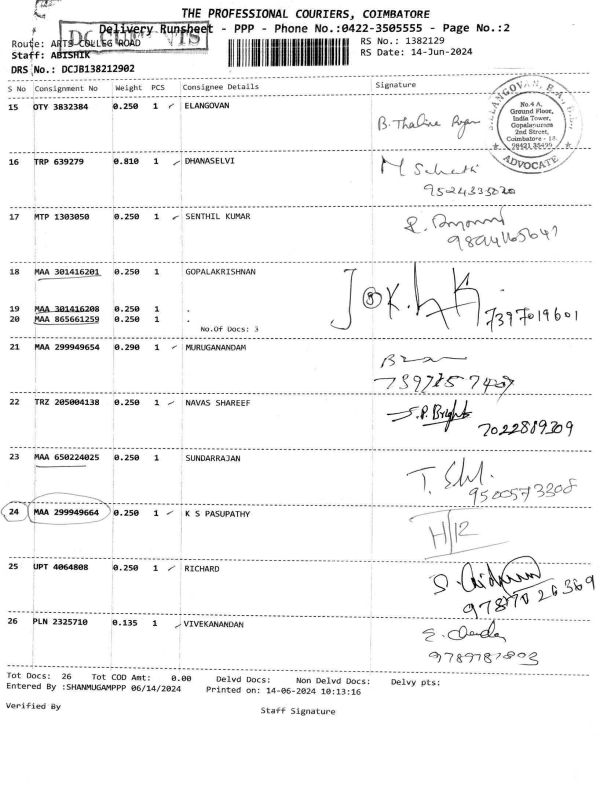 THE PROFESSIONAL COURIERS, COIMBATORE
Delivery Runsheet - PPP - Phone No.:0422-3505555 - Page No.:2
Route: ARTS COLLEG ROAD
RS No.: 1382129
Staff: ABISHIK
RS Date: 14-Jun-2024
DRS No.: DCJB138212902
S No Consignment No Weight PCS Consignee Details Signature
15 OTY 3832384 0.250 1 ELANGOVAN
No.4 A,
Ground Floor,
India Tower,
Gopalapuram
2nd Street,
Coimbatore - 18.
ADVOCATE
16 TRP 639279 0.810 1 DHANASELVI
17 MTP 1303050 0.250 1 SENTHIL KUMAR
18 MAA 301416201 0.250 1 GOPALAKRISHNAN
19 MAA 301416208 0.250 1 .
20 MAA 865661259 0.250 1 .
7397019601
No.Of Docs: 3
21 MAA 299949654 0.290 1 MURUGANANDAM
22 TRZ 205004138 0.250 1 NAVAS SHAREEF
S.P. Bright
7022889209
23 MAA 650224025 0.250 1 SUNDARRAJAN
9500573308
24 MAA 299949664 0.250 1 K S PASUPATHY
H/12
25 UPT 4064808 0.250 1 RICHARD
26 PLN 2325710 0.135 1 VIVEKANANDAN
Tot Docs: 26 Tot COD Amt: 0.00 Delvd Docs: Non Delvd Docs: Delvy pts:
Entered By :SHANMUGAMPPP 06/14/2024 Printed on: 14-06-2024 10:13:16
Verified By
Staff Signature